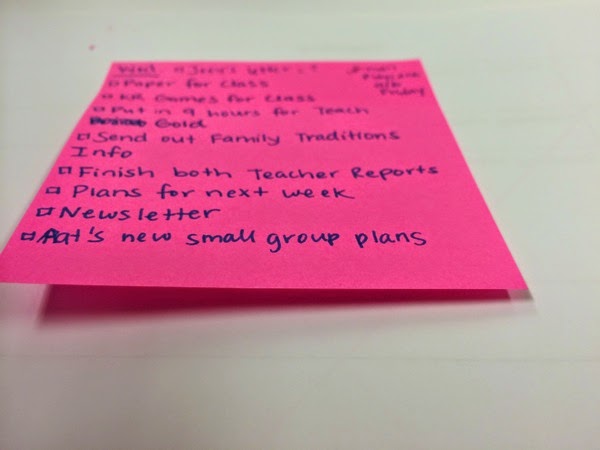 Email
Friday
Paper for Class
KR Games for Class
Put in 9 hours for Teach
Gold
Send out Family Traditions
Info
Finish both Teacher Reports
Plans for next week
Newsletter
Pat's new small group plans